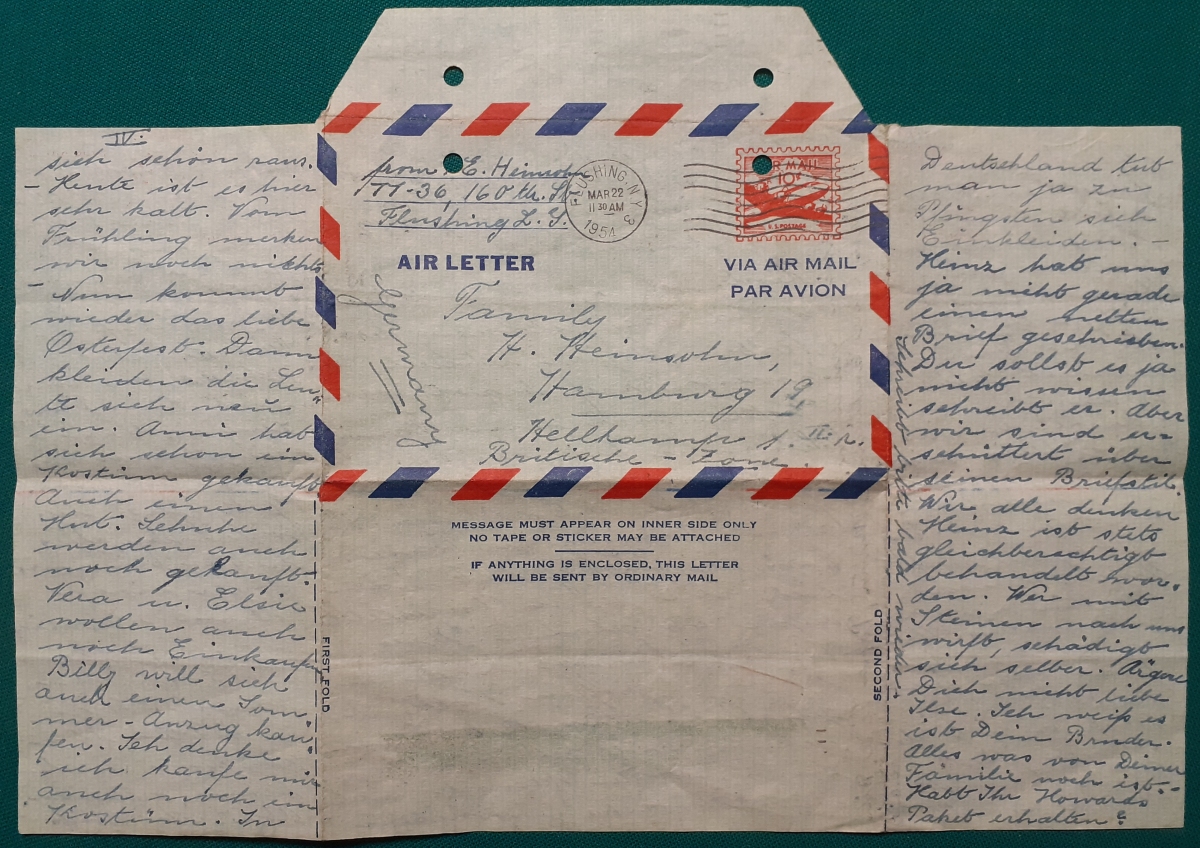 IV.
sich schön raus.
- Heute ist es hier
sehr kalt. Vom
Frühling merken
wir noch nichts.
- Nun kommt
wieder das liebe
Osterfest. Dann
kleiden die Leu-
te sich neu
ein. Anni hat
sich schon ein
Kostüm gekauft
Auch einen
Hut. Schuhe
werden auch
noch gekauft.
Vera u. Elsie
wollen auch
noch Einkaufen
Billy will sich
auch einen Som
mer-Anzug kau-
fen. Ich denke
ich kaufe mir
auch noch ein
Kostüm. In
from E. Heinsohn
77-36, 160 th. St.
Flushing L. I.
FLUSHING, N.Y. 3
MAR 22
11 30 AM
1954
AIR MAIL
10¢
U.S. POSTAGE
AIR LETTER
VIA AIR MAIL
PAR AVION
Germany
Family
H. Heinsohn,
Hamburg 19,
Hellkamp 1. II. r.
Britische-Zone.
MESSAGE MUST APPEAR ON INNER SIDE ONLY
NO TAPE OR STICKER MAY BE ATTACHED
IF ANYTHING IS ENCLOSED, THIS LETTER
WILL BE SENT BY ORDINARY MAIL
FIRST FOLD
SECOND FOLD
Deutschland tut
man ja zu
Pfingsten sich
Einkleiden. -
Heinz hat uns
ja nicht gerade
einen netten
Brief geschrieben.
Du sollst es ja
nicht wissen
schreibt er. Aber
wir sind er-
schüttert über
seinen Briefstil.
Wir alle denken
Heinz ist stets
gleichberechtigt
behandelt wor-
den. Wer mit
Steinen nach uns
wirft, schädigt
sich selber. Ärgere
Dich nicht liebe
Ilse. Ich weiß es
ist Dein Bruder.
Alles was von Deiner
Familie noch ist.-
Habt Ihr Howards
Paket erhalten?
Schreibt bitte bald wieder.